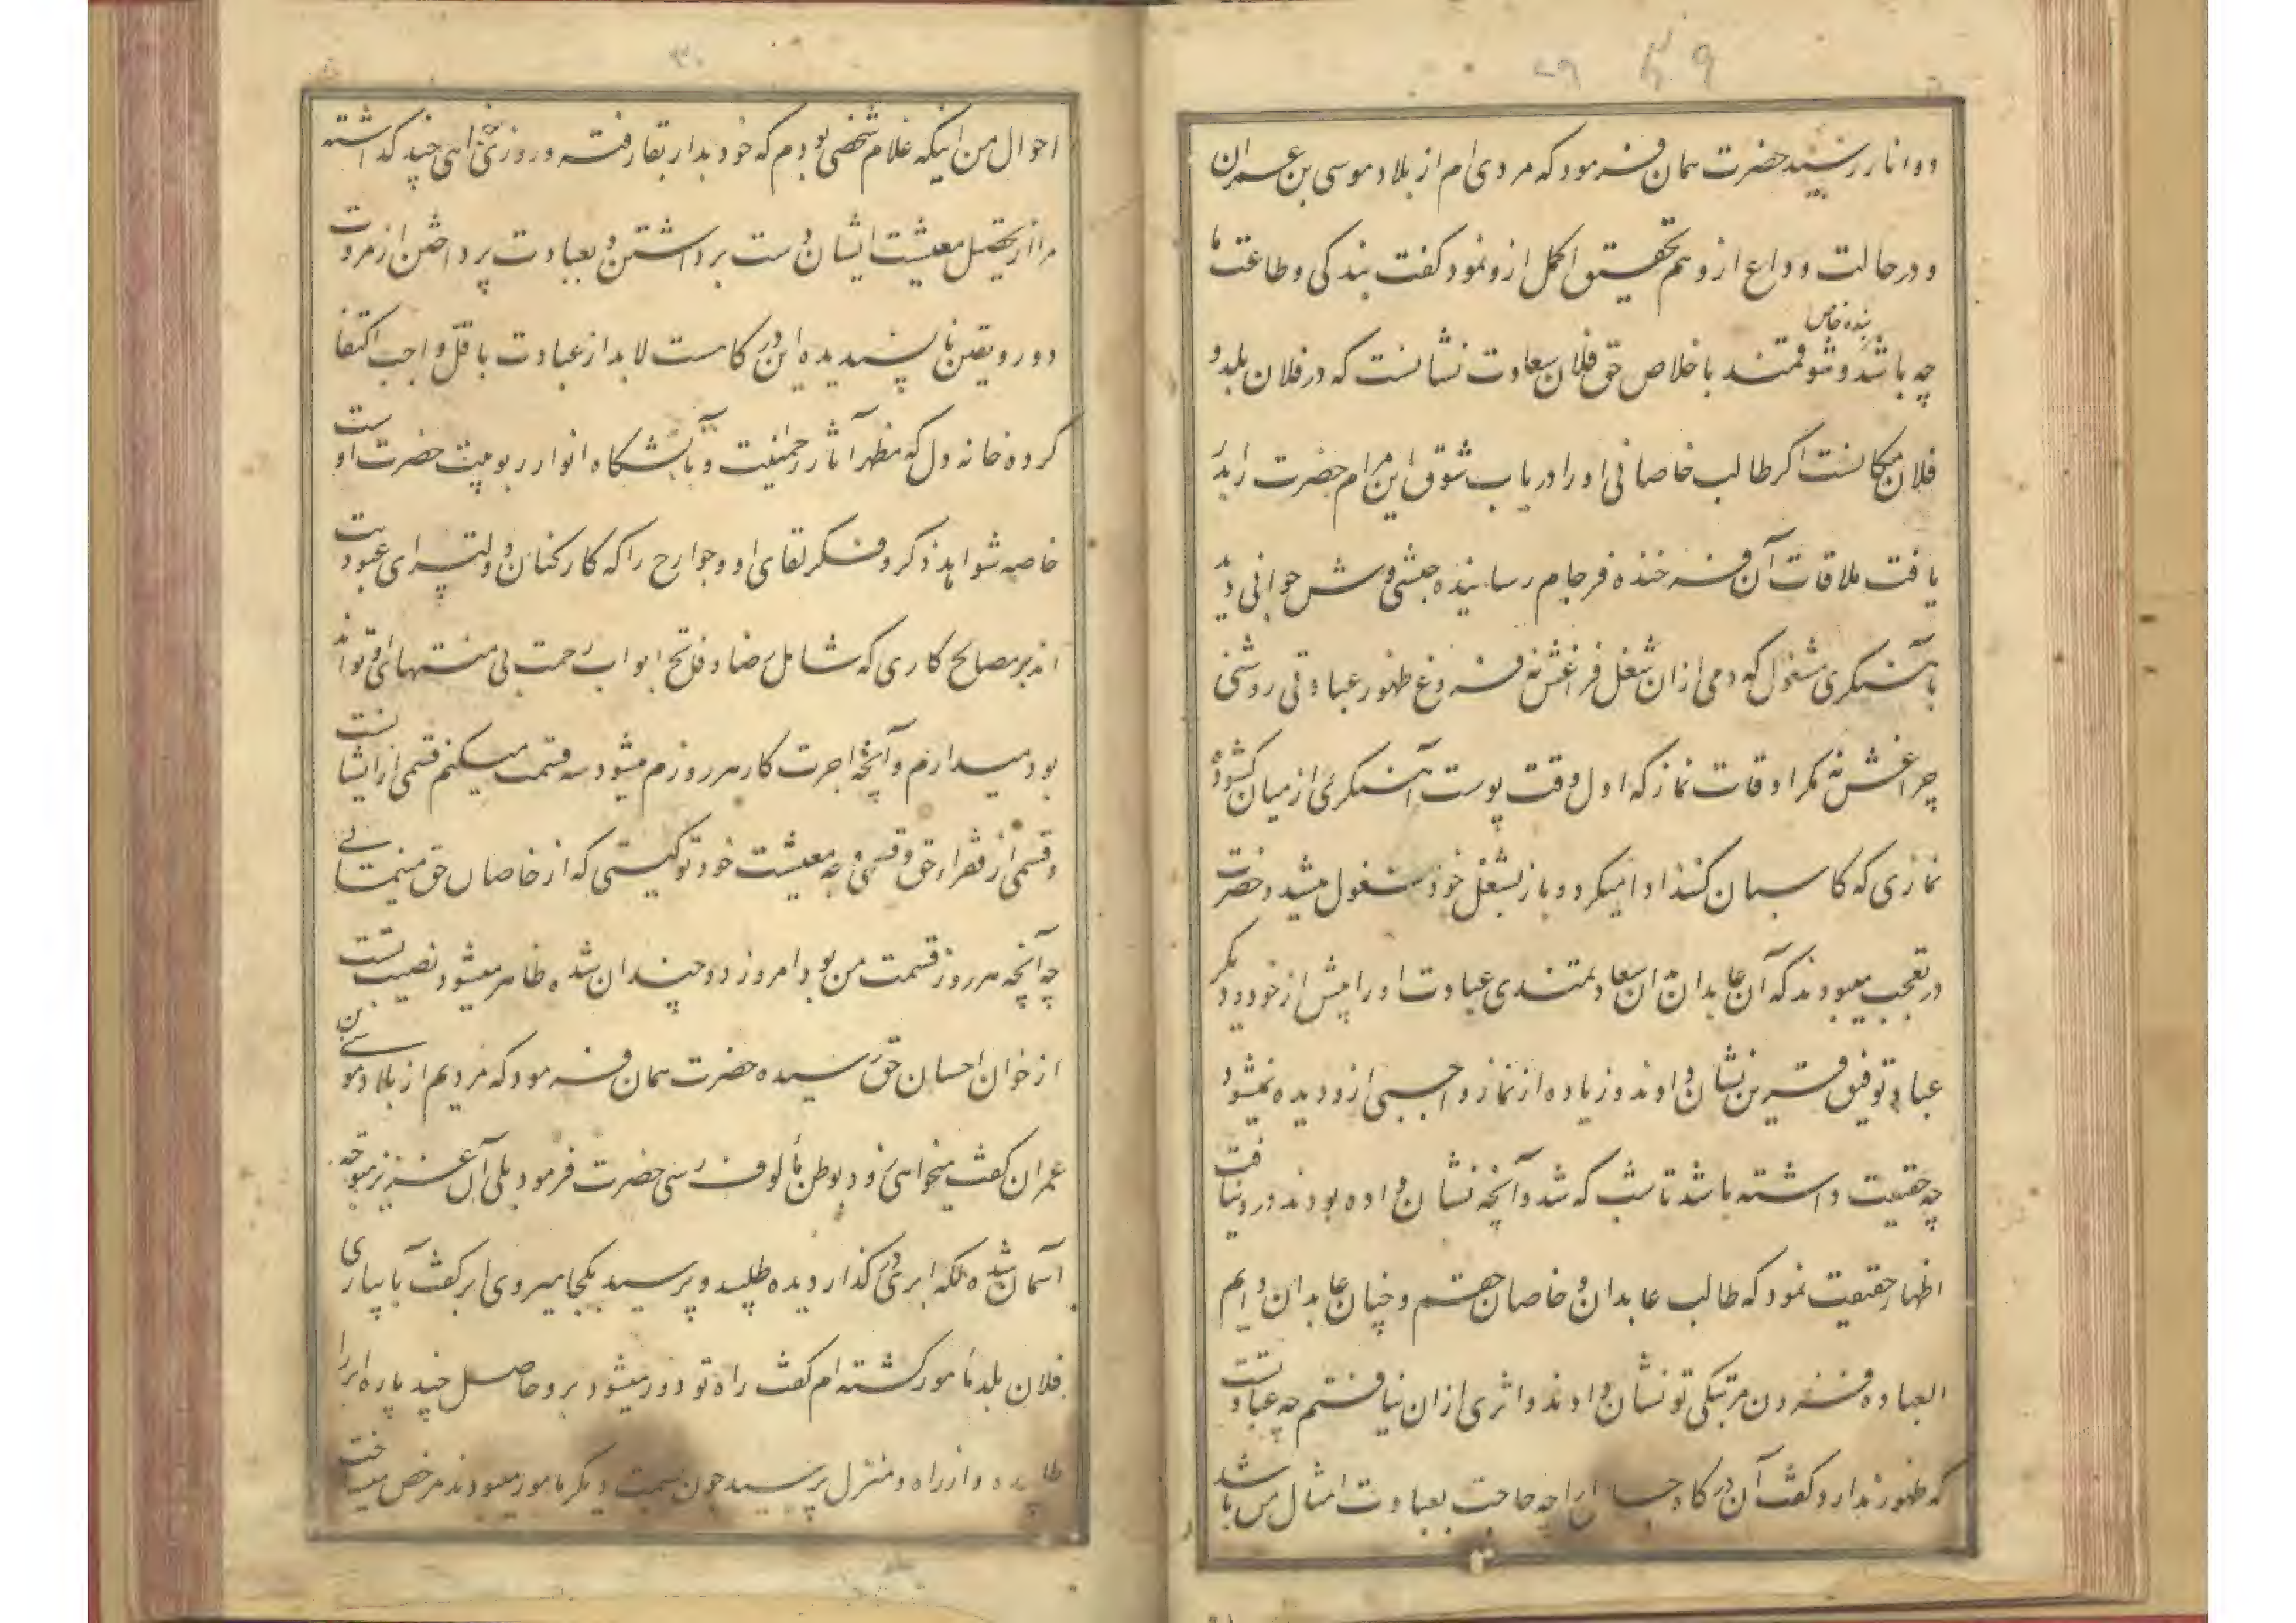 ۲۹ ۴۹
دو انار رسید حضرت همان فرمود که مردی ام از بلاد موسی بن عمران
و در حالت وداع ازو هم تحقیق اکمل ازو نمود گفت بندکی و طاعت ما
بنده خاص
چه باشد و شوقمند باخلاص حق فلان سعادت نشانست که در فلان بلد و
فلان مکانست اکر طالب خاصانی او را دریاب شوق این مرام حضرت را بد
یافت ملاقات آن فرخنده فرجام رسانیده حبشی وش جوانی دید
باهنکری مشغول که دمی ازان شغل فراغش نه فروغ ظهور عبادتی روشنی
چراغش نه مکر اوقات نماز که اول وقت پوست آهنکری از میان کشوده
نمازی که کاسبان کنند ادا میکرد و باز بشغل خود مشغول میشد و حضرت
در تعجب میبودند که آن عابدان این سعادتمندی عبادت او را بیش از خود و دیکر
عباد توفیق قرین نشان دادند و زیاده از نماز واجبی ازو دیده نمیشود
چه حقیقت داشته باشد تا شب که شد و آنچه نشان داده بودند درو نیافت
اظهار حقیقت نمود که طالب عابدان و خاصان حقم و چنان عابدان دایم
العباده فزودن مرتبکی تو نشان دادند و اثری ازان نیافتم چه عبادتست
که ظهور ندارد و کفت آن درکاه را چه حاجت بعبادت امثال من باشد
۳۰
احوال من اینکه غلام شخصی بودم که خود بدار بقا رفته و روزی خواهی چند کذاشته
مرا از تحصیل معیشت ایشان دست برداشتن و بعبادت پرداختن از مروت
دور و یقین ناپسندیده این درکاهست لابد از عبادت باقل واجب اکتفا
کرده خانه دل که مظهر آثار رحمانیت و تابشکاه انوار ربوبیت حضرت اوست
خاصه شواهد ذکر و فکر لقای او و جوارح را که کارکنان دولتسرای عبودیت
اند بر مصالح کاری که شامل رضا و فاتح ابواب رحمت بی منتهای او تواند
بود میدارم و آنچه اجرت کار هر روزم میشود سه قسمت میکنم قسمی از ایشانست
و قسمی از فقراء حق و قسمی وجه معیشت خود تو کیستی که از خاصان حق مینمائی
چه آنچه هر روز قسمت من بود امروز دو چندان شده ظاهر میشود نصیب تست
از خوان احسان حق رسیده حضرت همان فرمود که مردیم از بلاد موسی بن
عمران کفت میخواهی زود بوطن مألوف رسی حضرت فرمود بلی آن عزیز متوجه
آسمان شده لکه ابری در کذار دیده طلبید و پرسید بکجا میروی ابر کفت بآبیاری
فلان بلد مامور کشته ام کفت راه تو دور میشود برو حاصل چند پاره ابر را
طلبیده و از راه و منزل پرسید چون بسمت دیکر مامور میبودند مرخص میساخت